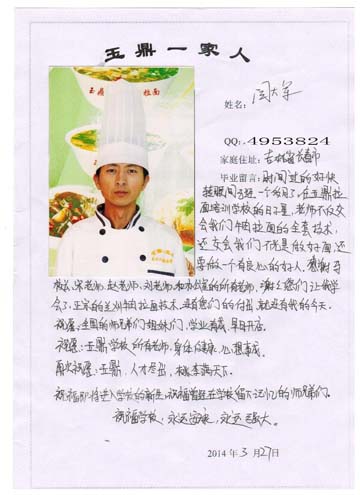 玉鼎一家人
玉鼎 拉面
姓名:
QQ:.4953824
家庭住址: 吉林省长春市
毕业留言: 时间过的好快
转眼间 一个月了,在玉鼎拉
面培训学校的日子里,老师不仅交
会我们牛肉拉面的全套技术,
还交会我们不光是做好面还
要做一个有良心的好人。感谢马
校长,宋老师,赵老师,刘老师,和办公室的所有老师,谢谢您们让我学
会了,正宗的兰州牛肉拉面技术。没有您们的付出,就没有我的今天。
祝愿:全国的师兄弟们 姐妹们,学业有成,早日开店。
祝愿:玉鼎学校所有老师,身体健康,心想事成。
再次祝愿:玉鼎,人才尽出,桃李满天下。
祝福即将进入学校的新生,祝福曾经在学校留下记忆的师兄弟们。
祝福学校:永远富康,永远强大。
2014年3月27日